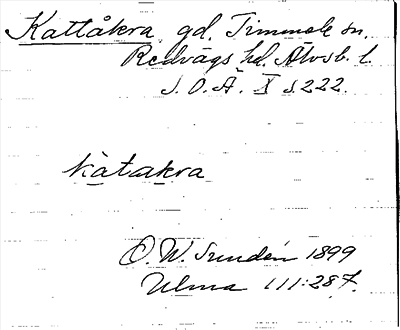 Kattåkra gd. Timmele sn.
Redvägs hd. Älvsb. l.
S. O. Ä. X s 222.
kàtakra
O. W. Sundén 1899
Ulma 111:287.